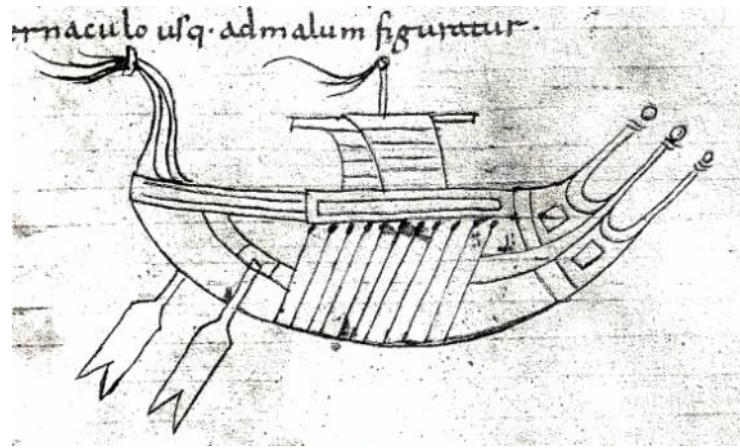 ernaculo usq· admalum figuratur.